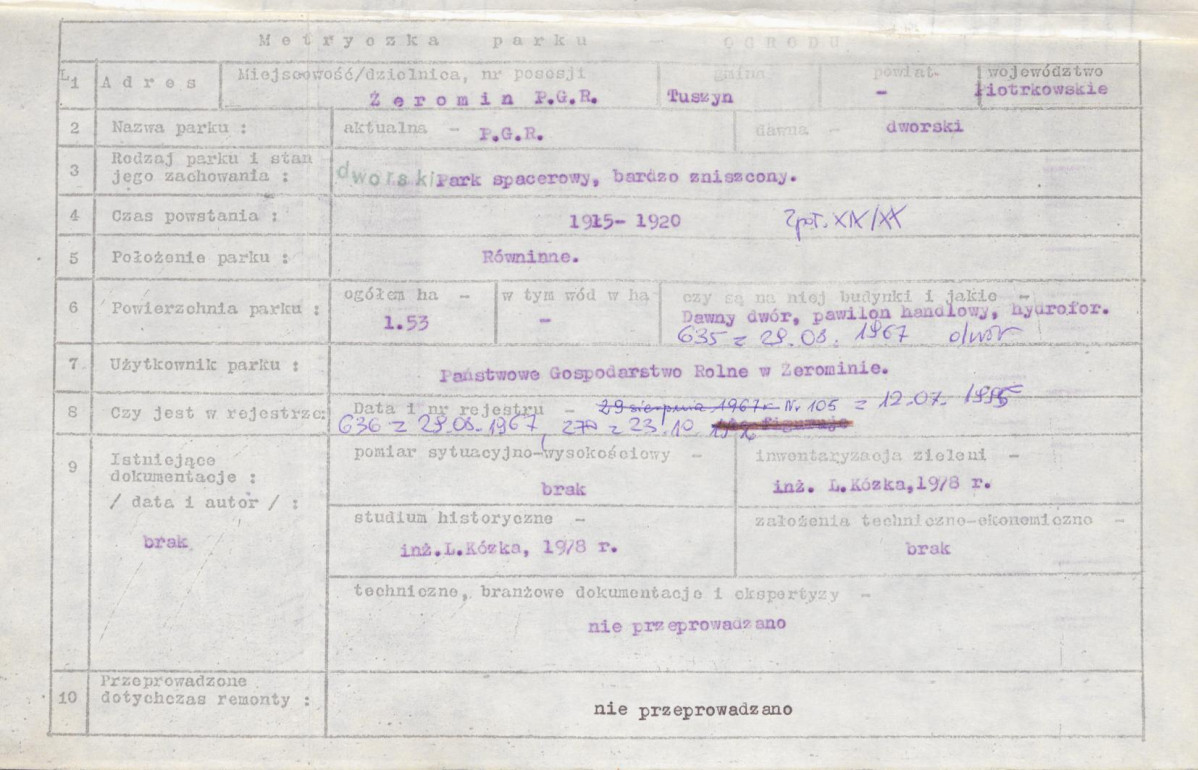 Metryczka parku - ogrodu
1 Adres Miejscowość/dzielnica, nr posesji gmina powiat województwo
Żeromin P.G.R. Tuszyn - Piotrkowskie
2 Nazwa parku : aktualna - P.G.R. dawna - dworski
3 Rodzaj parku i stan jego zachowania : dworski Park spacerowy, bardzo zniszcony.
4 Czas powstania : 1915- 1920 2 poł. XIX/XX
5 Położenie parku : Równinne.
6 Powierzchnia parku : ogółem ha - 1.53 w tym wód w ha - czy są na niej budynki i jakie -
Dawny dwór, pawilon handlowy, hydrofor.
635 z 29.08. 1967 dwór
7 Użytkownik parku : Państwowe Gospodarstwo Rolne w Żerominie.
8 Czy jest w rejestrze: Data i nr rejestru - 29 sierpnia 1967r Nr 105 z 12.07. 1995
636 z 29.08.1967, 270 z 23.10.
9 Istniejące dokumentacje : / data i autor / :
brak
pomiar sytuacyjno-wysokościowy - inwentaryzacja zieleni -
brak inż. L.Kózka,1978 r.
studium historyczne - założenia techniczno-ekonomiczno -
inż.L.Kózka, 1978 r. brak
techniczne, branżowe dokumentacje i ekspertyzy -
nie przeprowadzano
10 Przeprowadzone dotychczas remonty :
nie przeprowadzano